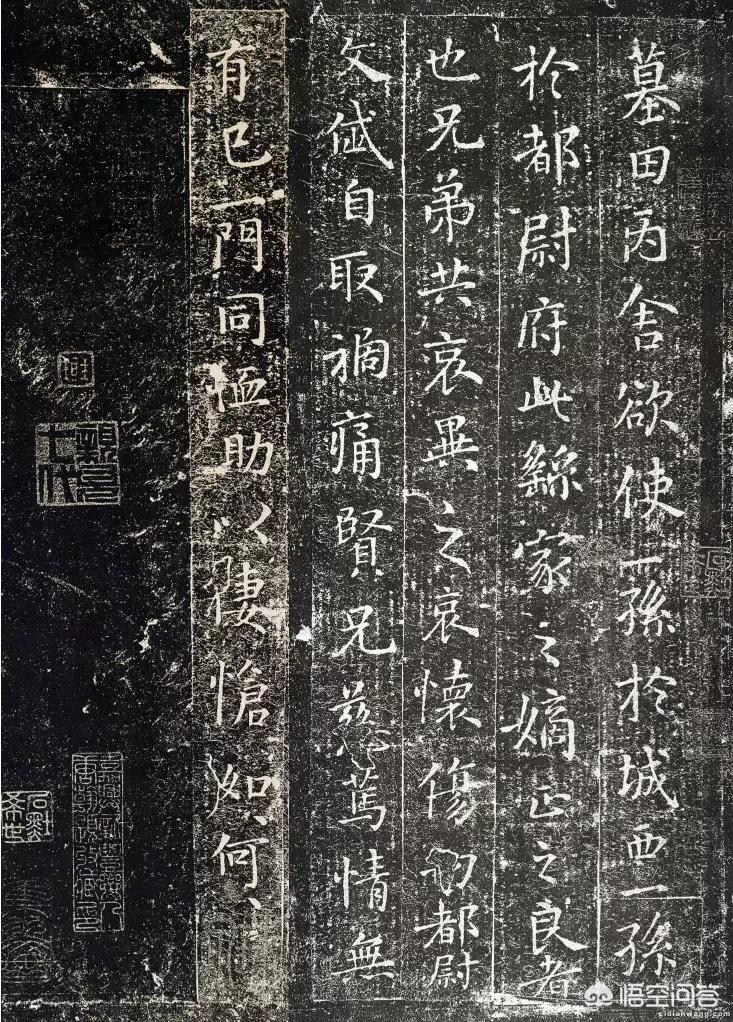 墓田丙舍欲使一孫於城西一孫
於都尉府此繇家之嫡正之良者
也兄弟共哀異之哀懷傷切都尉
文岱自取禍痛賢兄慈篤情無
有已一門同恤助以悽愴如、何、
悟空问答
cidianwang.com